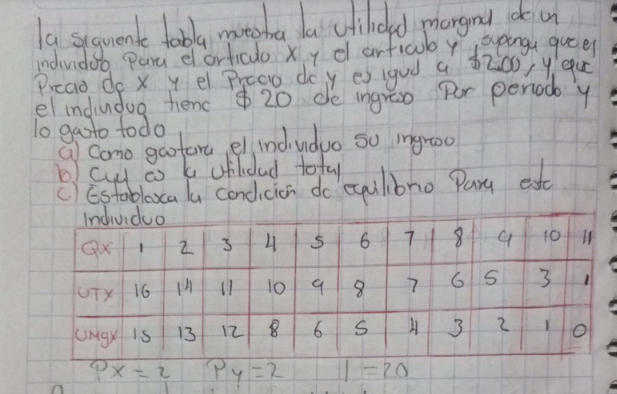 la siguiente tabla muestra la utilidad marginal de un
individuo para el articulo X y el articulo y, suponga que el
Precio de X y el Precio de y es igual a $2.00, y que
el individuo tiene $20 de ingreso Por periodo y
lo gasto todo
a) Como gastara el individuo su ingreso
b) Cual es la utilidad total
c) Establezca la condición de equilibrio Para este
individuo
QX 1 2 3 4 5 6 7 8 9 10 11
UTX 16 14 11 10 9 8 7 6 5 3 1
UMgX 15 13 12 8 6 5 4 3 2 1 0
Px=2 Py=2 I=20